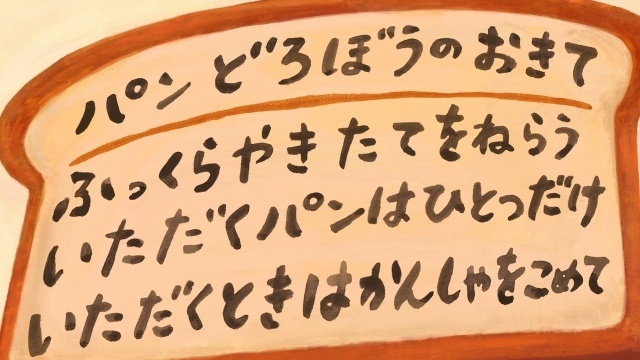 パンどろぼうのおきて
ふっくらやきたてをねらう
いただくパンはひとつだけ
いただくときはかんしゃをこめて